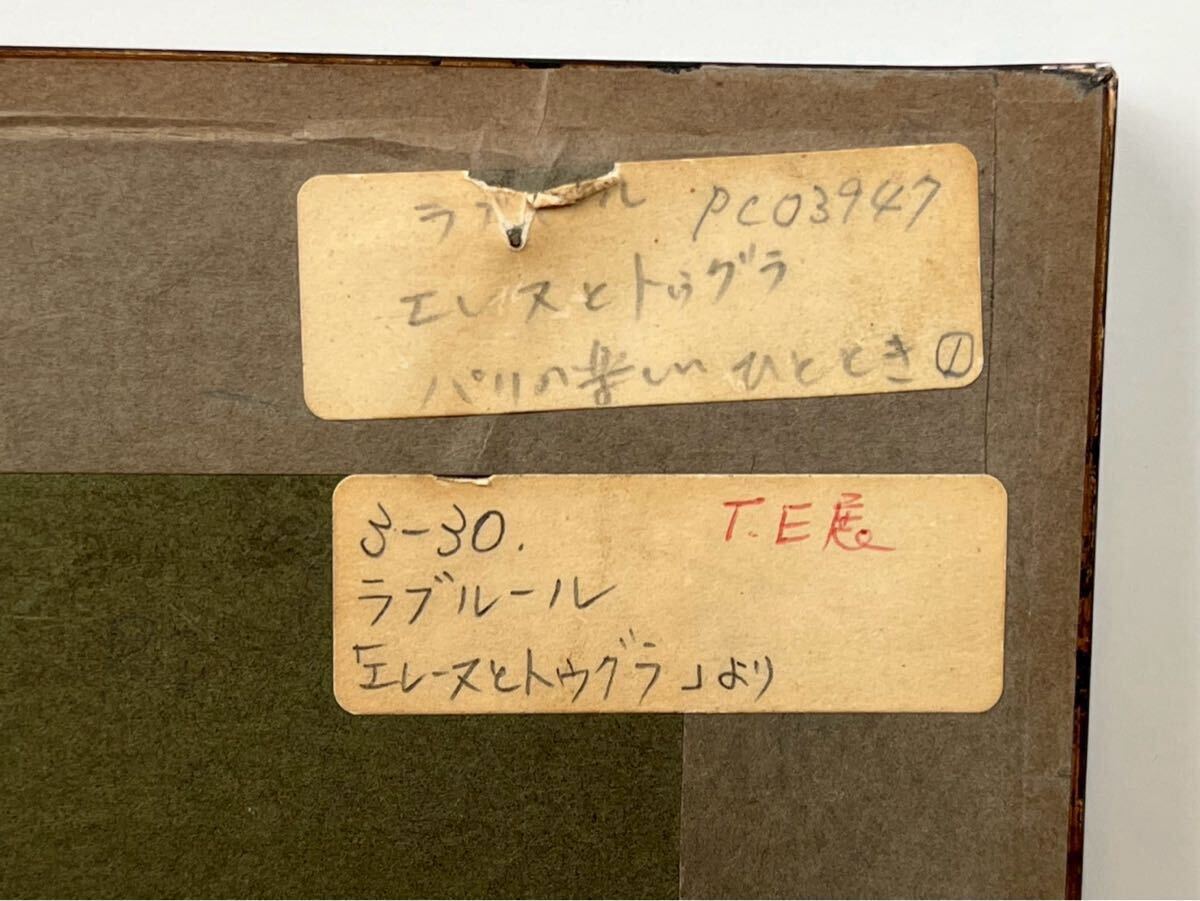 ラブルール PC03947
エレーヌとトゥグラ
パリの楽しいひととき ①
3-30. T.E展
ラブルール
「エレーヌとトゥグラ」より